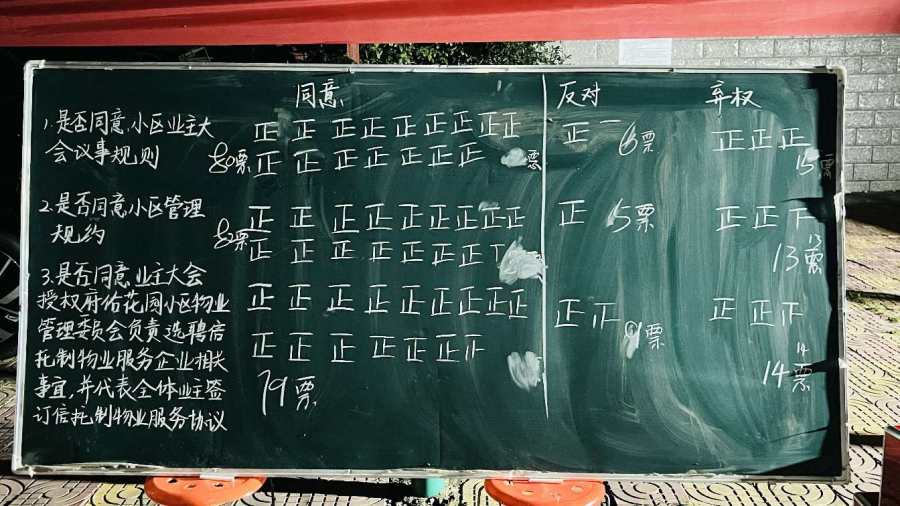 同意 反对 弃权
1.是否同意小区业主大 正 正 正 正 正 正 正 正 正 正一 6票 正 正 正
会议事规则 80票 正 正 正 正 正 正 正 票 15票
2.是否同意小区管理 正 正 正 正 正 正 正 正 正 正 5票 正 正 下
规约 82票 正 正 正 正 正 正 正 13 13票
3.是否同意业主大会
授权府佲花园小区物业 正 正 正 正 正 正 正 正 正 正 正 正
管理委员会负责选聘信 票
托制物业服务企业相关 正 正 正 正 正 正 14 14票
事宜,并代表全体业主签 79票
订信托制物业服务协议